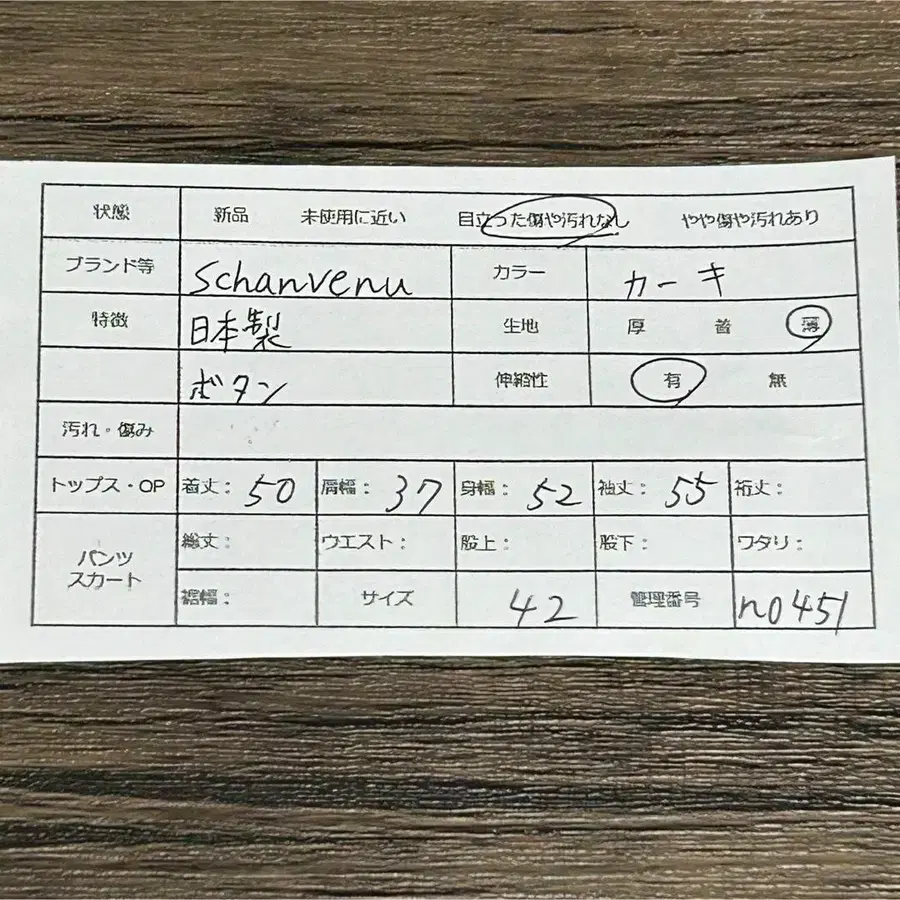 状態 新品 未使用に近い 目立った傷や汚れなし やや傷や汚れあり
ブランド等 Schanvenu カラー カーキ
特徴 日本製 生地 厚 普 薄
ボタン 伸縮性 有 無
汚れ・傷み
トップス・OP 着丈: 50 肩幅: 37 身幅: 52 袖丈: 55 裄丈:
パンツ スカート 総丈: ウエスト: 股上: 股下: ワタリ:
裾幅: サイズ 42 管理番号 n0451